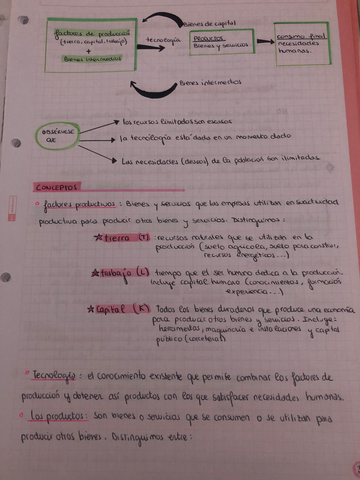 Bienes de capital
factores de producción
(tierra, capital, trabajo)
+
Bienes intermedios
tecnología
PRODUCTOS
Bienes y servicios
consumo final
necesidades
humanas.
Bienes intermedios
OBSÉRVESE
QUE
los recursos limitados son escasos
la tecnología está dada en un momento dado
Las necesidades (deseos) de la población son ilimitadas.
CONCEPTOS
factores productivos: Bienes y servicios que las empresas utilizan en su actividad
productiva para producir otros bienes y servicios. Distinguimos:
★ tierra (T): recursos naturales que se utilizan en la
producción (suelo agrícola, suelo para construir,
recursos energéticos...)
★ trabajo (L): tiempo que el ser humano dedica a la producción.
Incluye capital humano (conocimientos, formación
experiencia...)
★ Capital (K): Todos los bienes duraderos que produce una economía
para producir otros bienes y servicios. Incluye:
herramientas, maquinaria e instalaciones y capital
público (carreteras)
Tecnología: el conocimiento existente que permite combinar los factores de
producción y obtener así productos con los que satisfacer necesidades humanas.
Los productos: son bienes o servicios que se consumen o se utilizan para
producir otros bienes. Distinguimos entre: